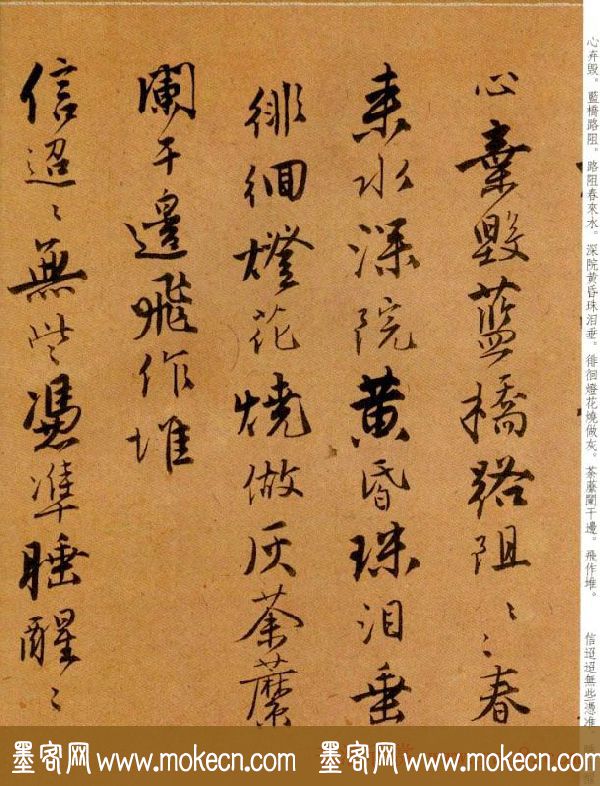 心弃毁。藍橋路阻。路阻春來水。深院黃昏珠泪垂。徘徊燈花燒做灰。荼蘼闌干邊。飛作堆。
信迢迢無些憑准
心棄毀藍橋路阻〻春
来水深院黄昏珠泪垂
徘徊燈花燒做灰荼蘼
闌干邊飛作堆
信迢〻無些憑準睡醒〻
墨客网 www.mokecn.com 墨客网 www.mokecn.com